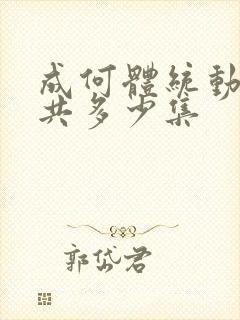 成何體統動
共多少集
郭岱君